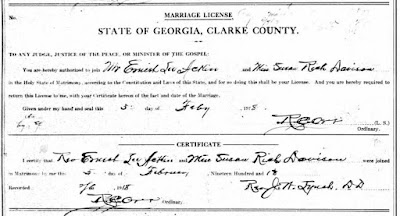 MARRIAGE LICENSE
STATE OF GEORGIA, CLARKE COUNTY.
TO ANY JUDGE, JUSTICE OF THE PEACE, OR MINISTER OF THE GOSPEL:
You are hereby authorized to join Mr Ernest and Miss Susan Rich Davison
in the Holy State of Matrimony, according to the Constitution and Laws of this State, and for so doing this shall be your License. And you are hereby required to
return this License to me, with your Certificate hereon of the fact and date of the Marriage.
Given under my hand and seal this 5 day of Feby 1918
(L. S.)
Ordinary.
CERTIFICATE
I certify that Ernest and Miss Susan Rich Davison were joined
in Matrimony by me this 5 day of February Nineteen Hundred and 18
Recorded 2/6 1918 Rev J. W. Lynch, D.D
Ordinary.